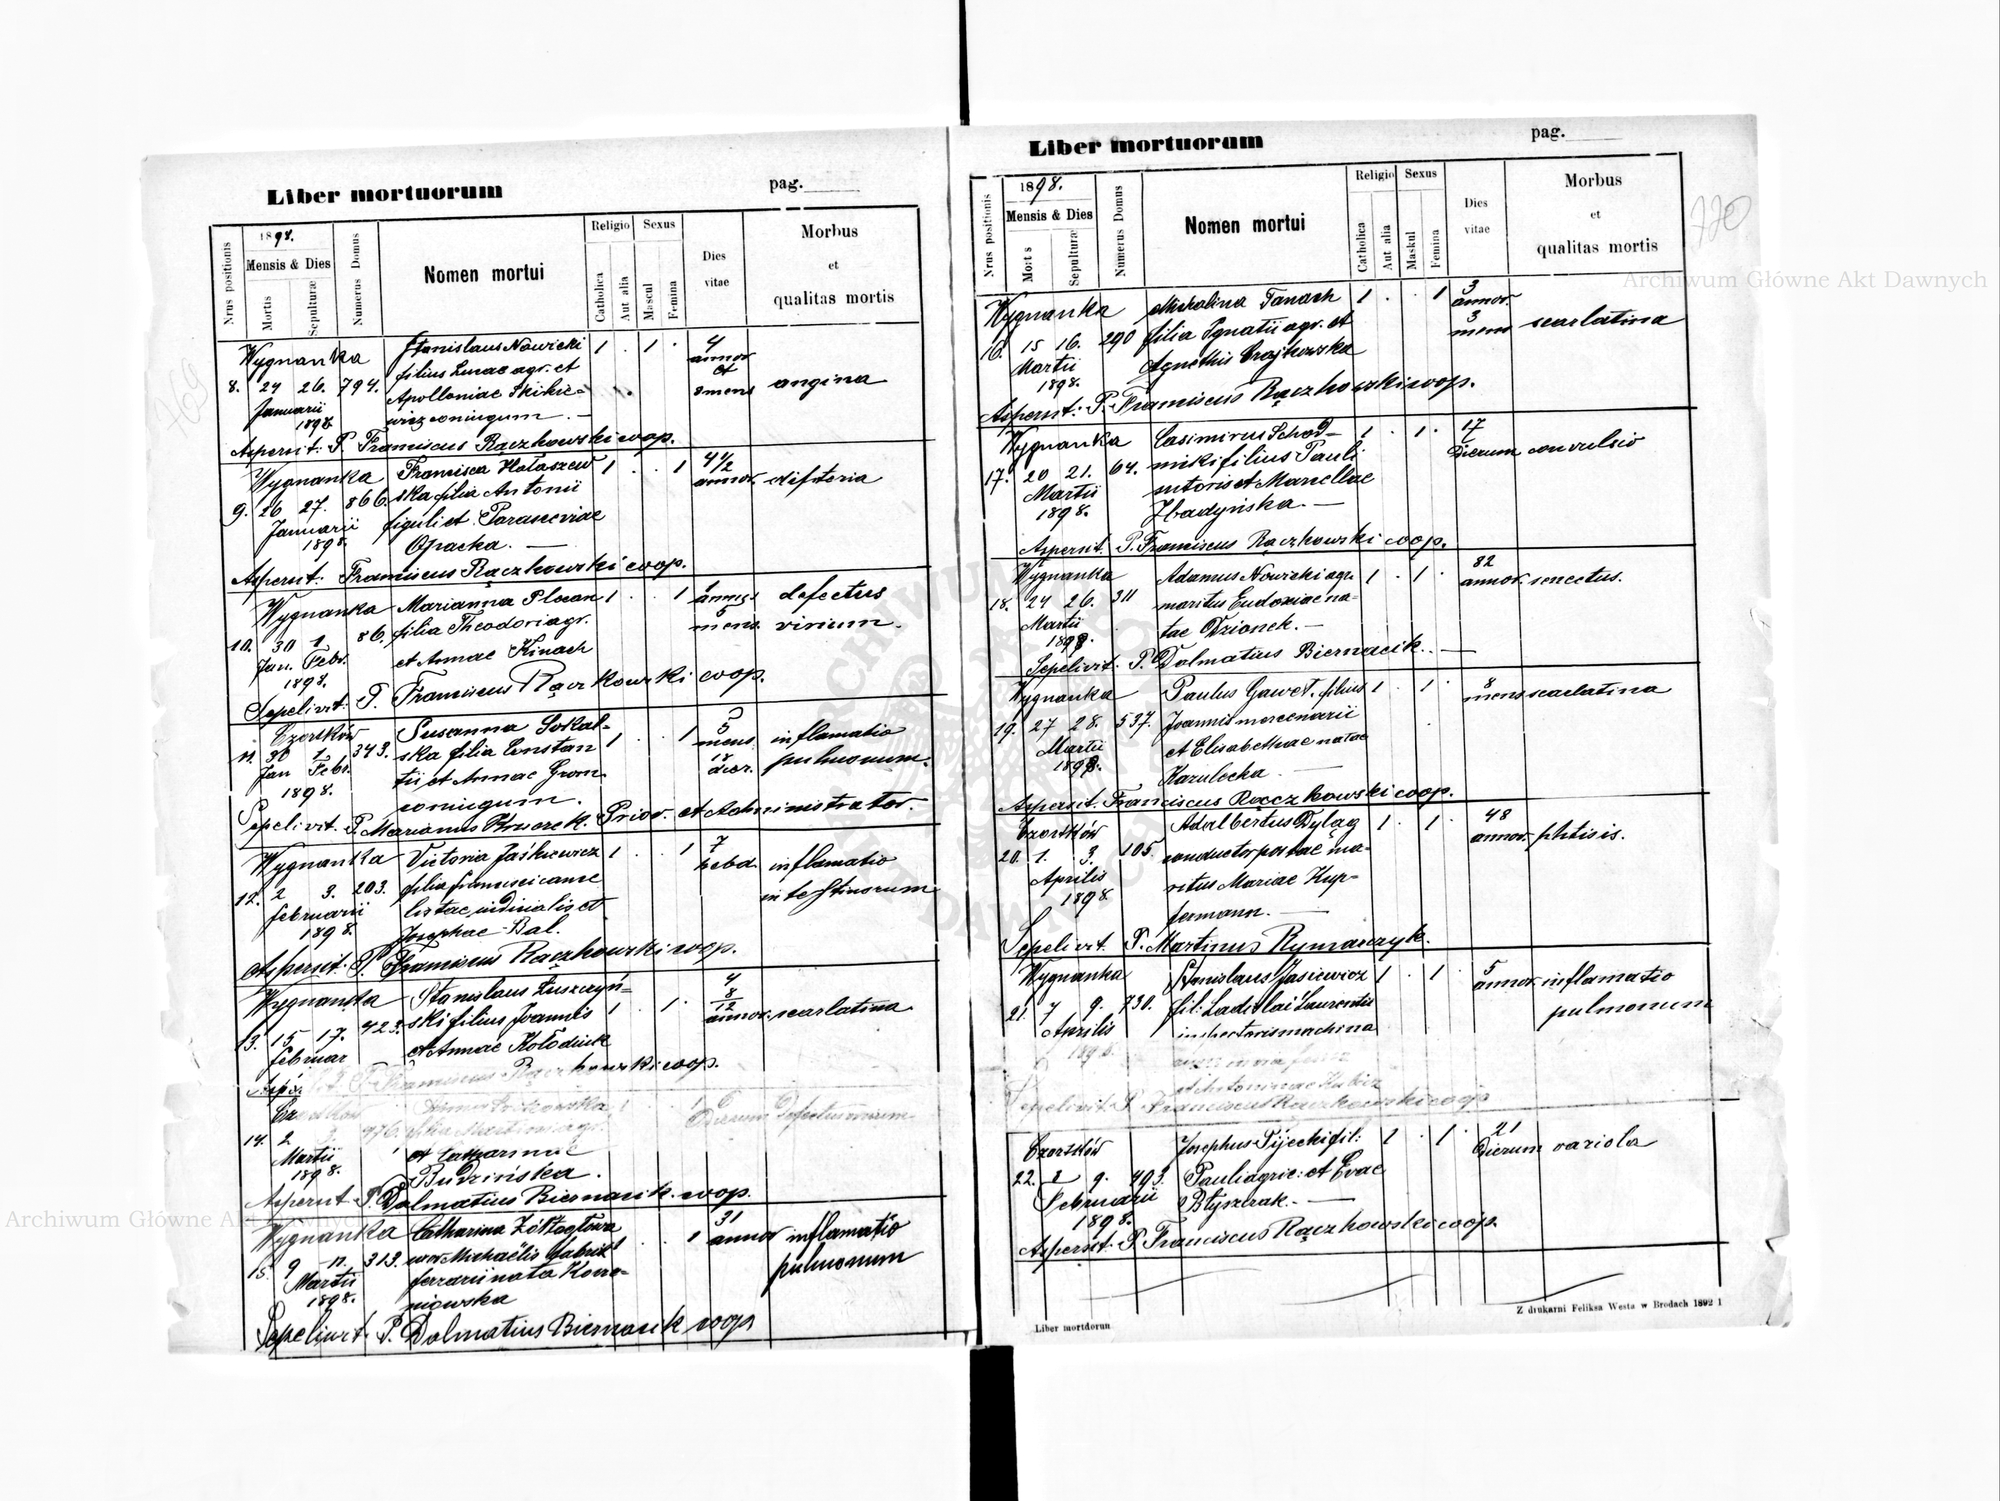 Liber mortuorum
pag.
Nrus positionis
1898.
Mensis & Dies
Mortis
Sepulturæ
Numerus Domus
Nomen mortui
Religio
Catholica
Aut alia
Sexus
Mascul
Femina
Dies
vitae
Morbus
et
qualitas mortis
Wygnanka Stanislaus Nowicki 1 . 1 . 4
filius Lucae agr. et annor
8. 24 26. 794. Apolloniae Skikie= et angina
Januarii wicz coniugum. — 8 mens
1898.
Aspersit: P. Franciscus Rączkowski coop.
Wygnanka Francisca Hołaszew 1 . . 1 4 1/2
9. 26 27. 866. ska filia Antonii annor. difteria
Januarii figuli et Parasceviae
1898. Opacka. —
Aspersit: Franciscus Rączkowski coop.
Wygnanka Marianna Plocan 1 . . 1 defectus
10. 30 1. 86. filia Theodori agr. mens. virium.
Jan. Febr. et Annae Kinach
1898.
Sepelivit: P. Franciscus Rączkowski coop.
Czortków Susanna Sokal- 5
11. 30 1. 343. ska filia Constan 1 . . 1 mens inflamatio
Jan Febr. tii et Annae Grom 18 pulmonum.
1898. coniugum. dier.
Sepelivit. P. Marianus Prior. et Administrator.
Wygnanka Victoria Jaśkiewicz 1 . . 1 7
12. 2 3. 203. filia Francisci cance hebd. inflamatio
Februarii listae iudicialis et intestinorum
1898. Josephae Bal.
Aspersit: P. Franciscus Rączkowski coop.
Wygnanka Stanislaus Łuszczyń- 4
13. 15 17. 423. ski filius Joannis 1 . 1 . 8/12 annor. scarlatina
Februar et Annae Kołodziuk
P. Franciscus Rączkowski coop.
filia Martini agr. Dierum defectus virium
14. 2 976. et Catharinae
Martii Budzińska.
1898.
Aspersit P. Dolmatius Biernacik. coop.
Wygnanka Catharina Żółtogłowa 31
15. 9 11. 313. uxor Michaëlis Gabriel . . 1 annor inflamatio
Martii ferrarii nata Koro- pulmonum
1898. niowska
Sepelivit. P. Dolmatius Biernacik coop
Liber mortuorum
pag.
770
Nrus positionis
1898.
Mensis & Dies
Mortis
Sepulturæ
Numerus Domus
Nomen mortui
Religio
Catholica
Aut alia
Sexus
Maskul
Femina
Dies
vitae
Morbus
et
qualitas mortis
Wygnanka Michalina Tanach 1 . . 1 3
16. 15 16. 290 filia Ignatii agr. et annor. scarlatina
Martii Agnethis Czajkowska 3 mens
1898.
Aspersit: P. Franciscus Rączkowski coop.
Wygnanka Casimirus Schod- 1 . 1 . 17
17. 20 21. 64. nikifilius Pauli Dierum convulsio
Martii sutoris et Marcellae
1898. Zbadyńska. —
Aspersit. P. Franciscus Rączkowski coop.
Wygnanka Adamus Nowicki agr. 1 . 1 . 82
18. 24 26. 311 maritus Eudoxiae na= annor. senectus.
Martii tae Dzionek. —
1898.
Sepelivit. P. Dolmatius Biernacik. —
Wygnanka Paulus Gaweł, filius 1 . 1 . 8
19. 27 28. 537. Joannis mercenarii mens scarlatina
Martii et Elisabethae natae
1898. Kazulecka —
Aspersit. Franciscus Rączkowski coop.
Czortków Adalbertus Dyląg 1 . 1 . 48
20. 1. 3. 105. conductor postae ma- annor. phtisis.
Aprilis ritus Mariae Kup-
1898 fermann. —
Sepelivit. P. Martinus Rymarczyk.
Wygnanka Stanislaus Jasiewicz 1 . 1 . 5
21. 7 9. 730. fil: Ladislai Laurentii annor. inflamatio
Aprilis inspectoris machina pulmonum
1898.
et Antoninae
Sepelivit. P. Franciscus Rączkowski coop
Czortków Josephus Pijecki fil: 1 . 1 . 21
22. 8 9. 493. Pauli agric: et Evae Dierum variola
Februarii Błyszczak. —
1898.
Aspersit. P Franciscus Rączkowski coop.
Liber mortdorun
Z drukarni Feliksa Westa w Brodach 1892 1
Archiwum Główne Akt Dawnych
Archiwum Główne Akt Dawnych